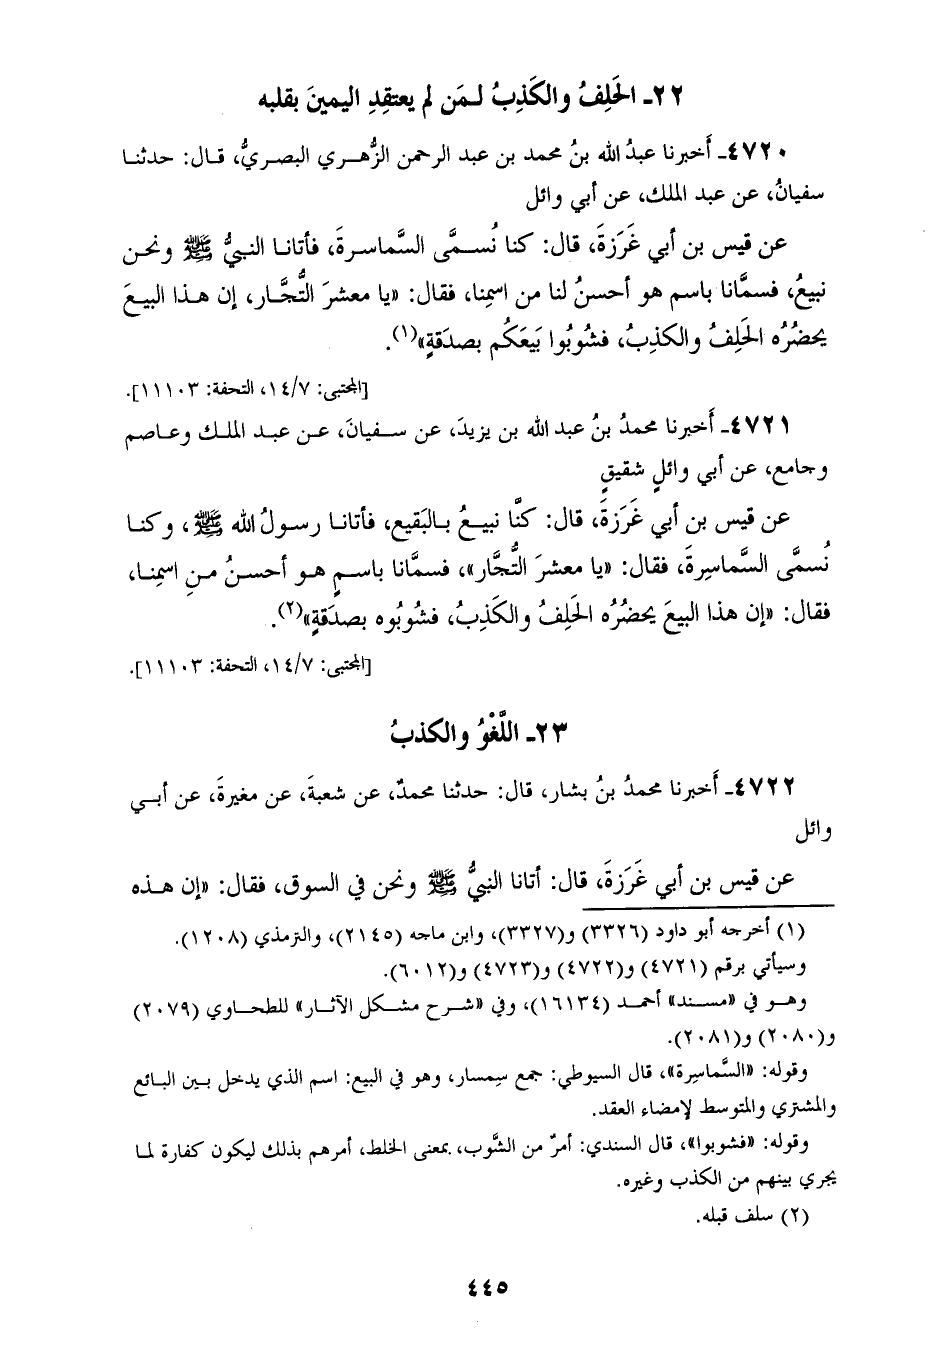 ٢٢- الحَلِفُ والكَذِبُ لـمَن لم يعتقِدِ اليمينَ بقلبه
٤٧٢٠- أَخبرنا عبدُ الله بنُ محمد بن عبد الرحمن الزُّهـري البصريُّ، قـال: حدثنـا
سفيانُ، عن عبد الملك، عن أبي وائل
عن قيس بن أبي غَرَزةَ، قال: كنا نُسـمَّى السَّماسـرةَ، فأتانـا النبيُّ ﷺ ونحـن
نبيعُ، فسمَّانا باسم هو أحسنُ لنا من اسمِنا، فقال: «يا معشرَ التُّجَّار، إن هـذا البيـعَ
يحضُرُه الحَلِفُ والكَذِبُ، فشُوبُوا بَيعَكُم بصدَقةٍ»(١).
[المجتبى: ١٤/٧، التحفة: ١١١٠٣].
٤٧٢١- أَخبرنا محمدُ بنُ عبد الله بن يزيدَ، عن سـفيانَ، عـن عبـد الملـك وعـاصم
وجامع، عن أبي وائلٍ شقيقٍ
عن قيس بن أبي غَرَزةَ، قال: كنَّا نبيـعُ بـالبَقيع، فأتانـا رسـولُ الله ﷺ، وكنـا
نُسمَّى السَّماسِرةَ، فقال: «يا معشرَ التُّجَّار»، فسمَّانا باسـمٍ هـو أحسـنُ مـنِ اسمِنـا،
فقال: «إن هذا البيعَ يحضُرُه الحَلِفُ والكَذِبُ، فشُوبُوه بصدَقةٍ»(٢).
[المجتبى: ١٤/٧، التحفة: ١١١٠٣].
٢٣- اللَّغْوُ والكذبُ
٤٧٢٢- أَخبرنا محمدُ بنُ بشار، قال: حدثنا محمدٌ، عن شعبةَ، عن مغيرةَ، عن أبـي
وائل
عن قيس بن أبي غَرَزةَ، قال: أتانا النبيُّ ﷺ ونحن في السوق، فقال: «إن هـذه
(١) أخرجه أبو داود (٣٣٢٦) و(٣٣٢٧)، وابن ماجه (٢١٤٥)، والترمذي (١٢٠٨).
وسيأتي برقم (٤٧٢١) و(٤٧٢٢) و(٤٧٢٣) و(٦٠١٢).
وهـو في «مسـند» أحمـد (١٦١٣٤)، وفي «شـرح مشـكل الآثـار» للطحـاوي (٢٠٧٩)
و(٢٠٨٠) و(٢٠٨١).
وقوله: «السَّماسِرة»، قال السيوطي: جمع سِمسار، وهو في البيع: اسم الذي يدخل بـين البـائع
والمشتري والمتوسط لإمضاء العقد.
وقوله: «فشوبوا»، قال السندي: أمرٌ من الشَّوب، بمعنى الخلط، أمرهم بذلك ليكون كفارة لمـا
يجري بينهم من الكذب وغيره.
(٢) سلف قبله.
٤٤٥